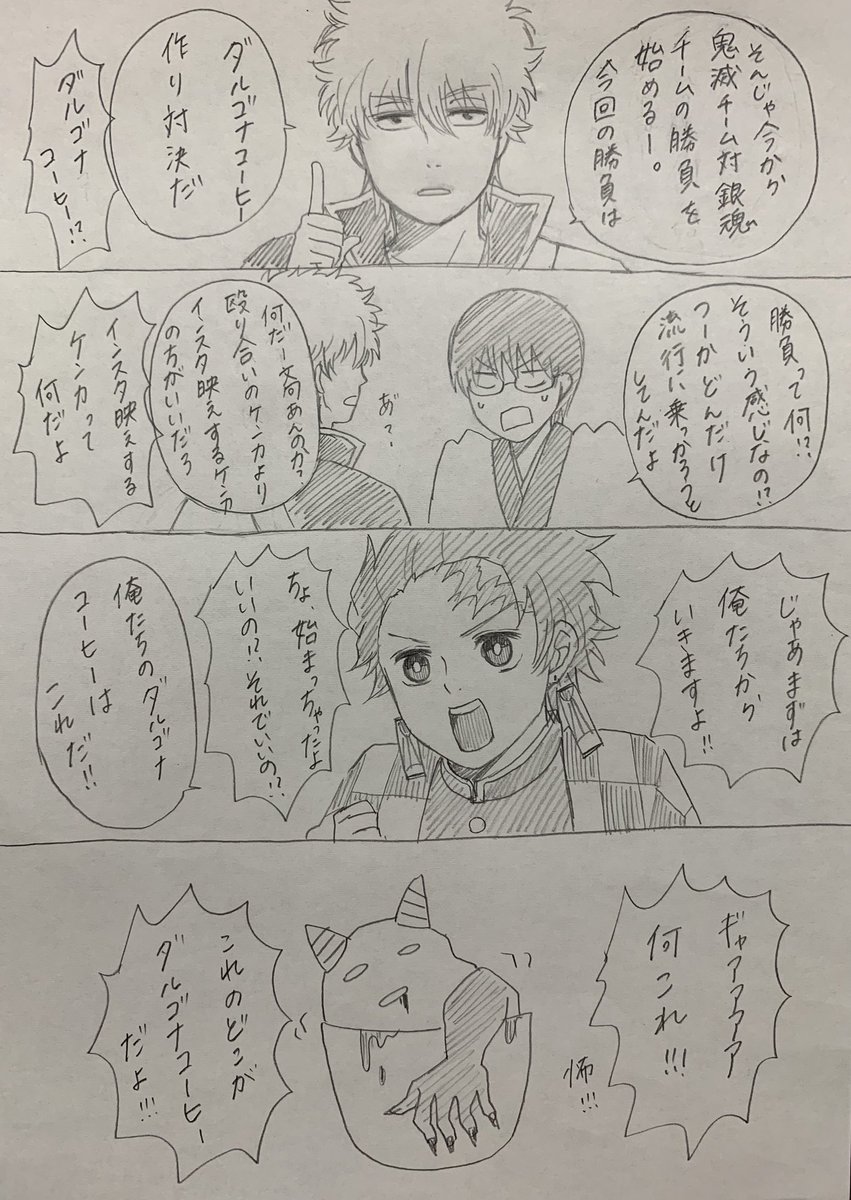 そんじゃ今から
鬼滅チーム対銀魂
チームの勝負を
始めるー。
今回の勝負は
ダルゴナコーヒー
作り対決だ
ダルゴナ
コーヒー!?
勝負って何!?
そういう感じなの!?
つーかどんだけ
流行に乗っかろうと
してんだよ
あ〜
何だー文句あんのかっ
殴り合いのケンカより
インスタ映えするケンカ
のちがいいだろ
インスタ映えする
ケンカって
何だよ
じゃあまずは
俺たちから
いきますよ!!
ちょ、始まっちゃったよ
いいの!?、それでいいの!?
俺たちのダルゴナ
コーヒーは
これだ!!
ギャアアアア
何これ!!!
怖!!!
これのどこが
ダルゴナコーヒー
だよ!!!